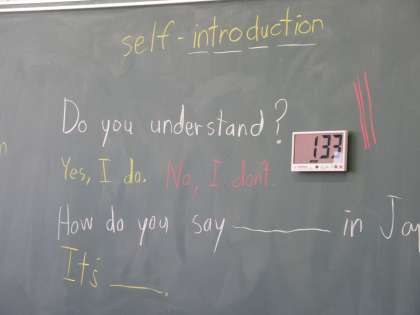 self-introduction
Do you understand?
1 33
Yes, I do. No, I don't.
How do you say ______ in Jap
It's ____.